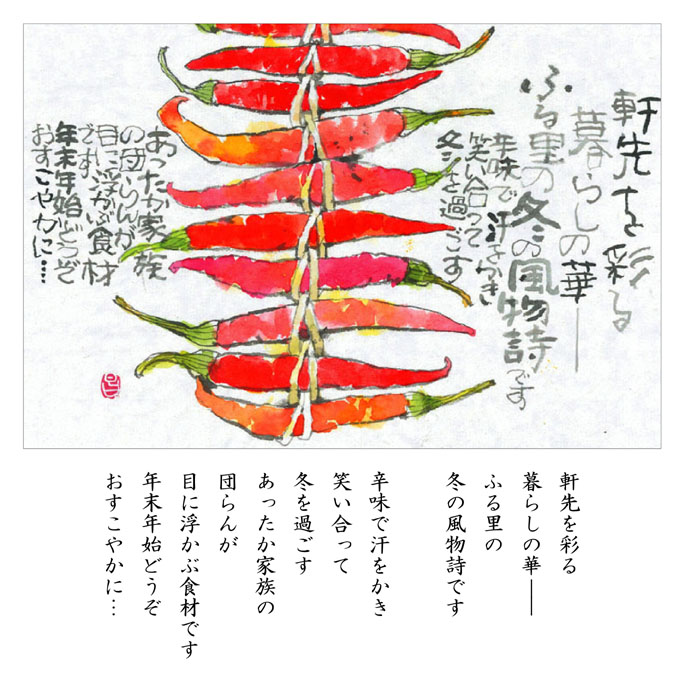 軒先を彩る
暮らしの華――
ふる里の
冬の風物詩です
辛味で汗をかき
笑い合って
冬を過ごす
あったか家族
の団らんが
目に浮かぶ食材
です。
年末年始どうぞ
おすこやかに…
軒先を彩る
暮らしの華――
ふる里の
冬の風物詩です
辛味で汗をかき
笑い合って
冬を過ごす
あったか家族の
団らんが
目に浮かぶ食材です
年末年始どうぞ
おすこやかに…